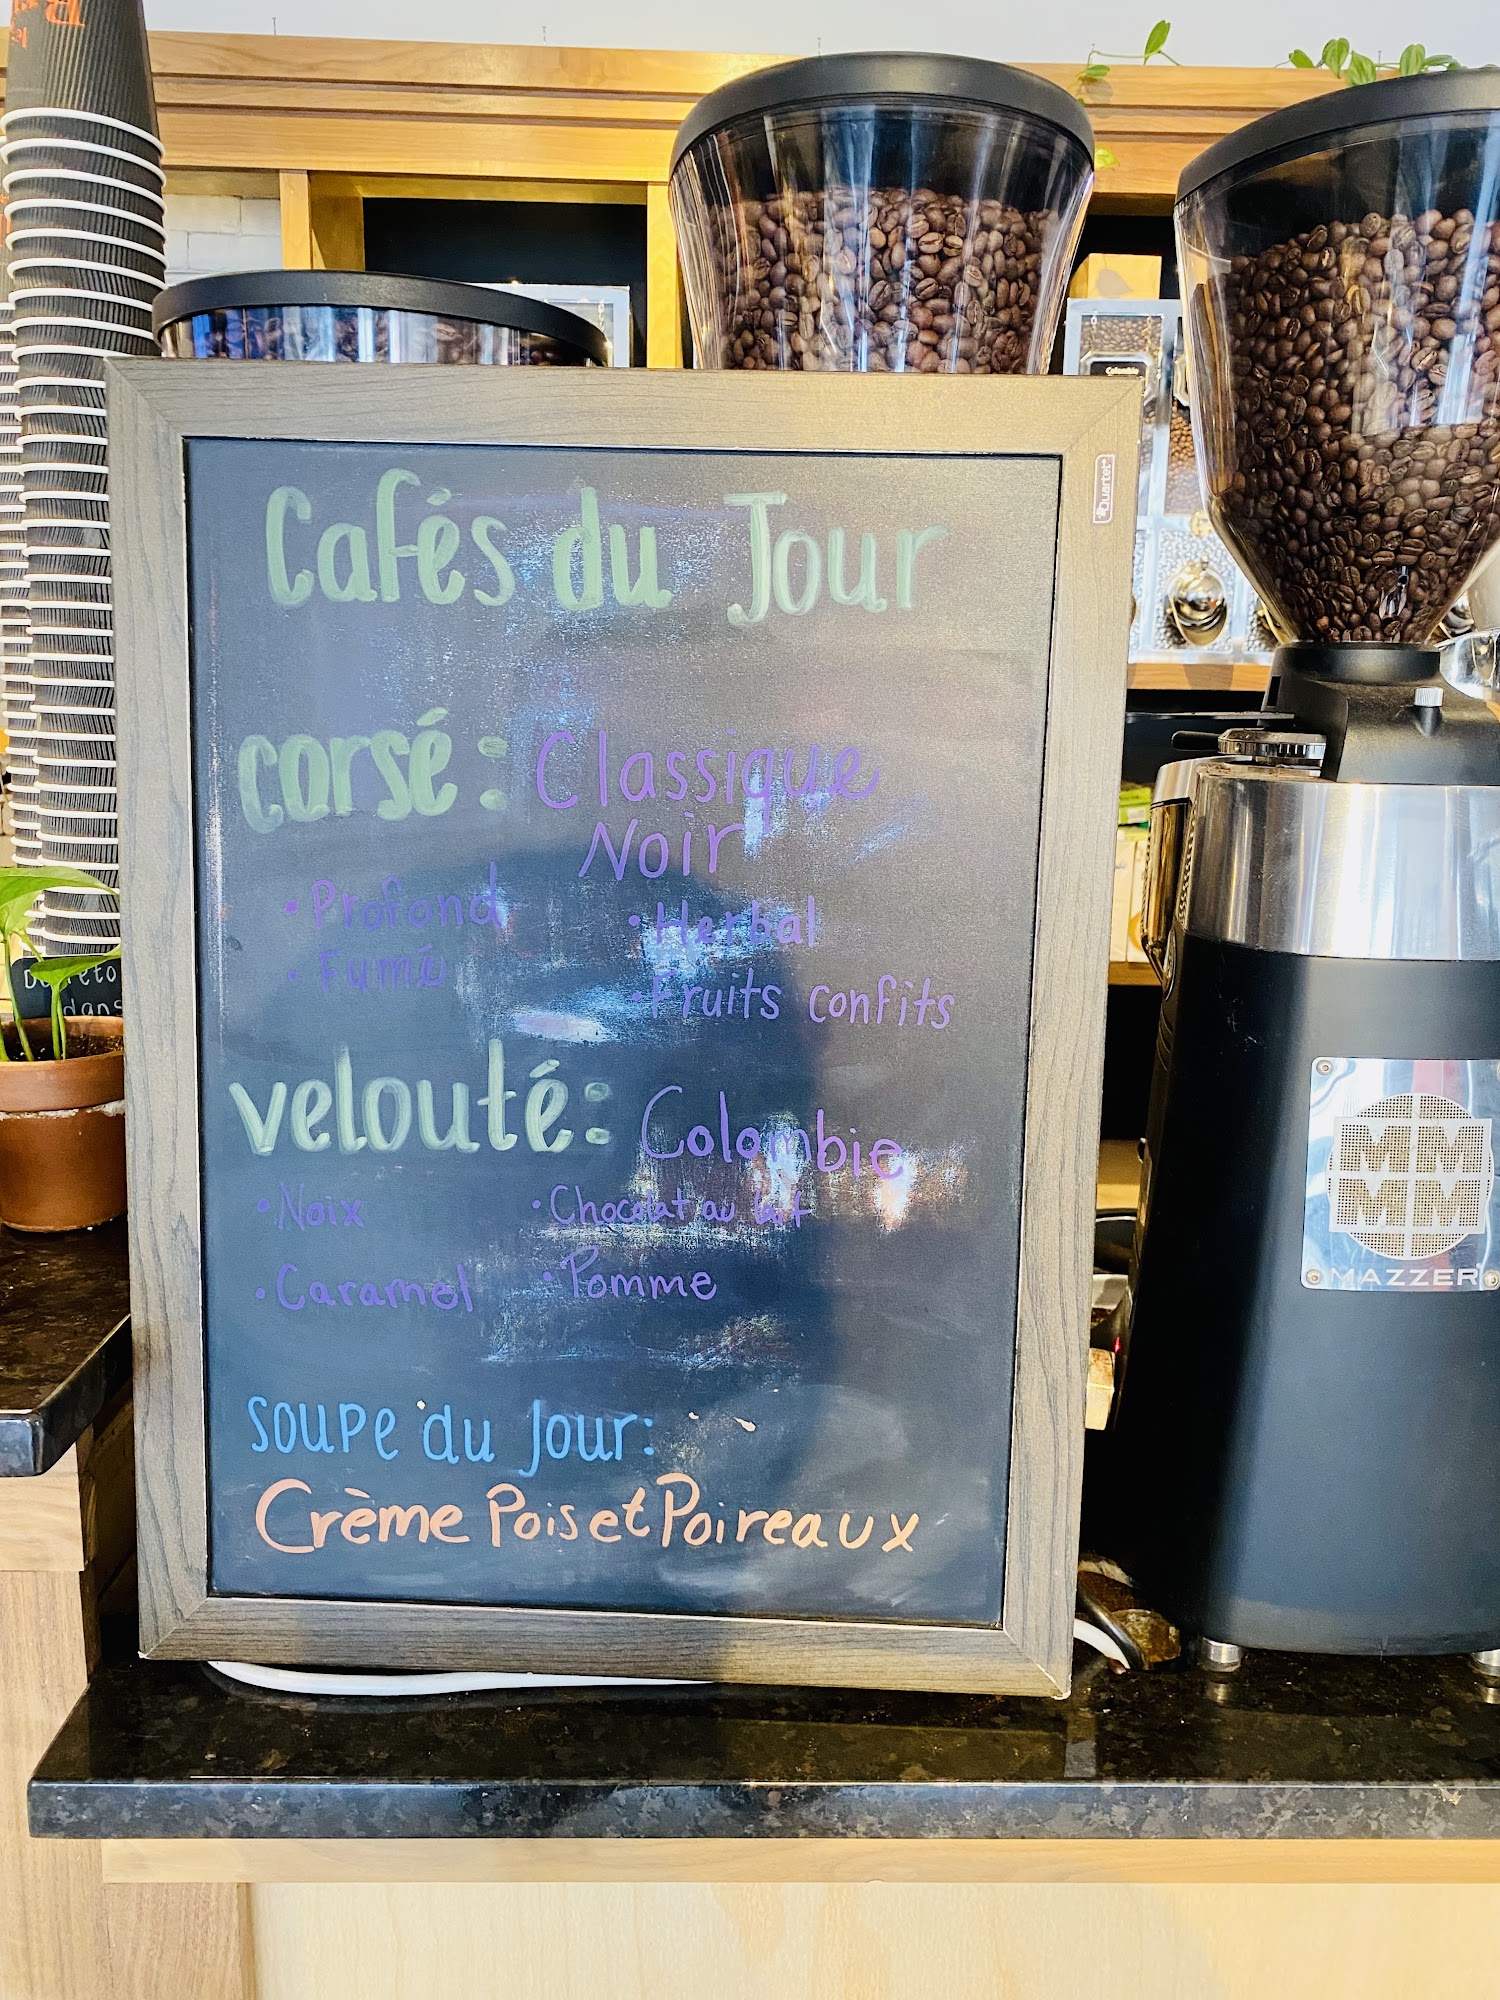 Cafés du Jour
corsé: Classique
Noir
• Profond
• Herbal
• Fumé
• Fruits confits
velouté: Colombie
• Noix
• Chocolat au lait
• Caramel
• Pomme
soupe du jour:
Crème Pois et Poireaux
Quartet
MAZZER
Colombie
dans